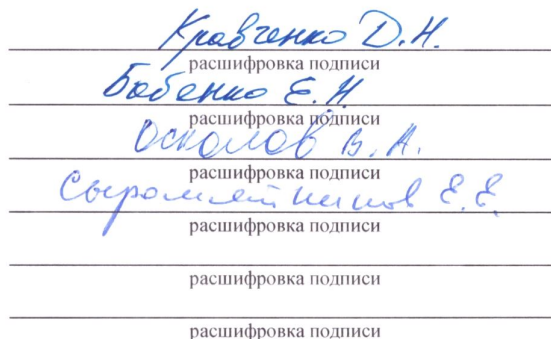 Кравченко Д.Н.
расшифровка подписи
Бабенко Е.Н
расшифровка подписи
Осколов В.А.
расшифровка подписи
Сыромятников Е.Е.
расшифровка подписи
расшифровка подписи
расшифровка подписи